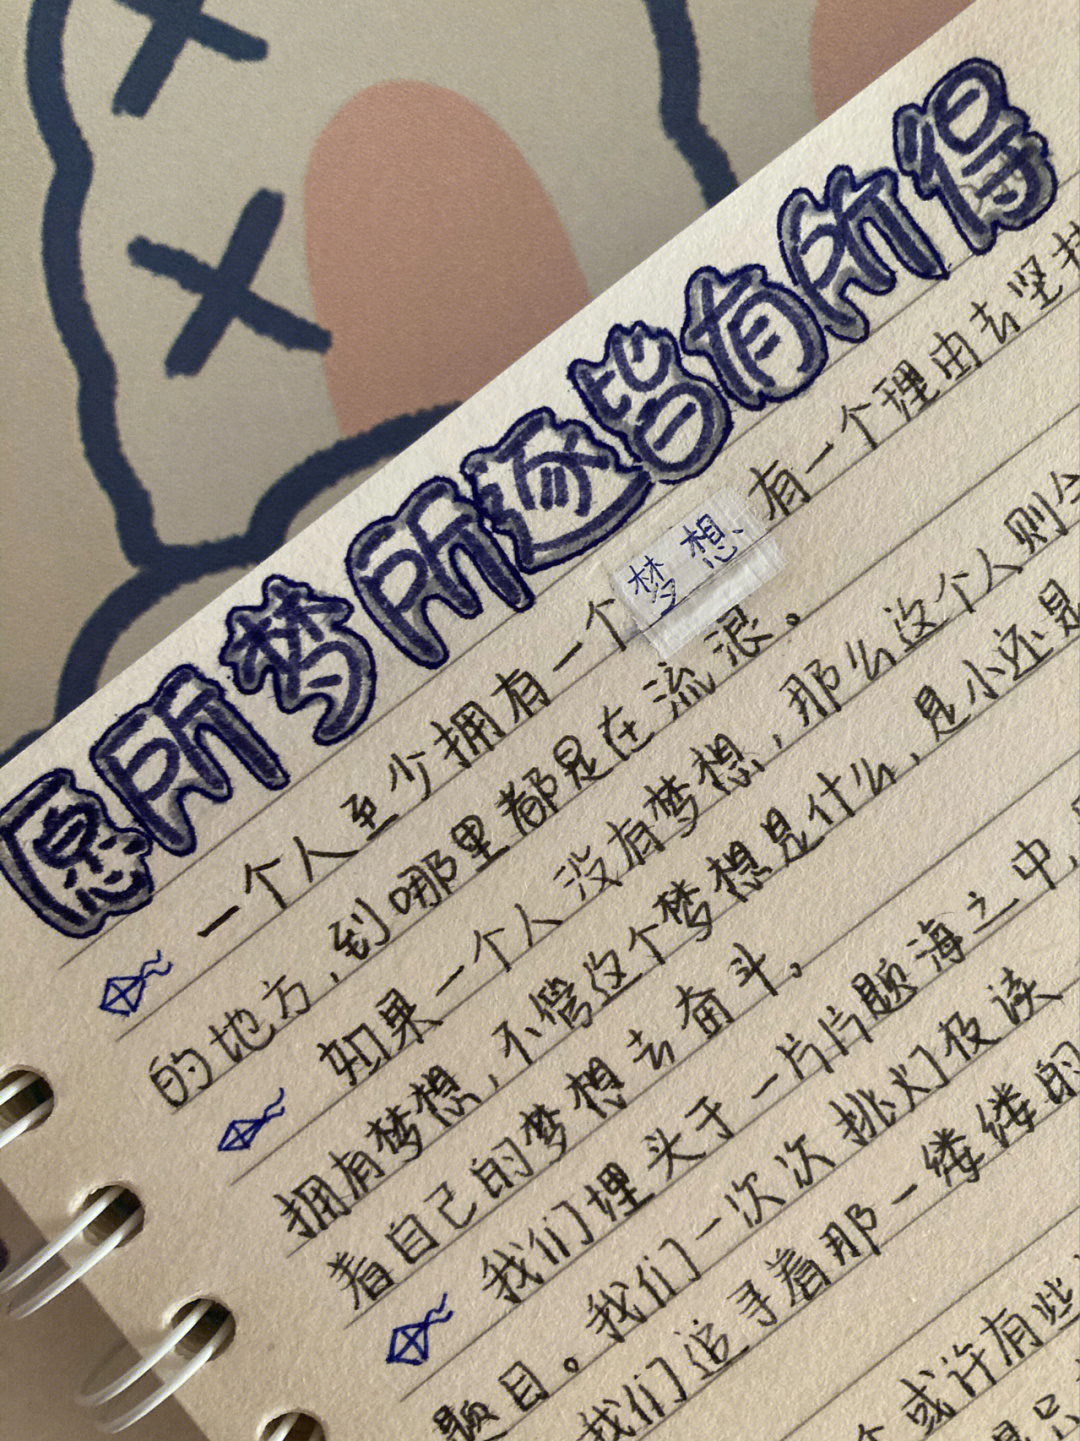 愿所梦所逐皆有所得
一个人至少拥有一个梦想、有一个理由去坚
的地方,到哪里都是在流浪。
如果一个人没有梦想,那么这个人则
拥有梦想,不管这个梦想是什么,是小还是
着自己的梦想去奋斗,
我们埋头于一片片题海之中,
题目。我们一次次挑灯极读
我们追寻着那一缕缕的
个或许有些